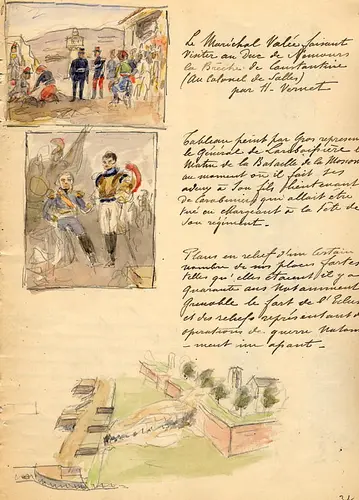 Le Maréchal Valée faisant
visiter au Duc de Nemours
la Brèche de Constantine
(Au Colonel de Salles)
par H. Vernet
Tableau peint par Gros représen
le Général de Lariboisière l
matin de la Bataille de la Moscow
au moment où il fait ses
adieux à son fils lieutenant
de Carabiniers qui allait être
tué en chargeant à la tête de
son régiment.
Plans en relief d'un certain
nombre de nos places fortes
telles qu'elles étaient il y a
quarante ans notamment
Grenoble le fort de l'Eclus
et des reliefs représentant d
opérations de guerre notam
-ment une apart.